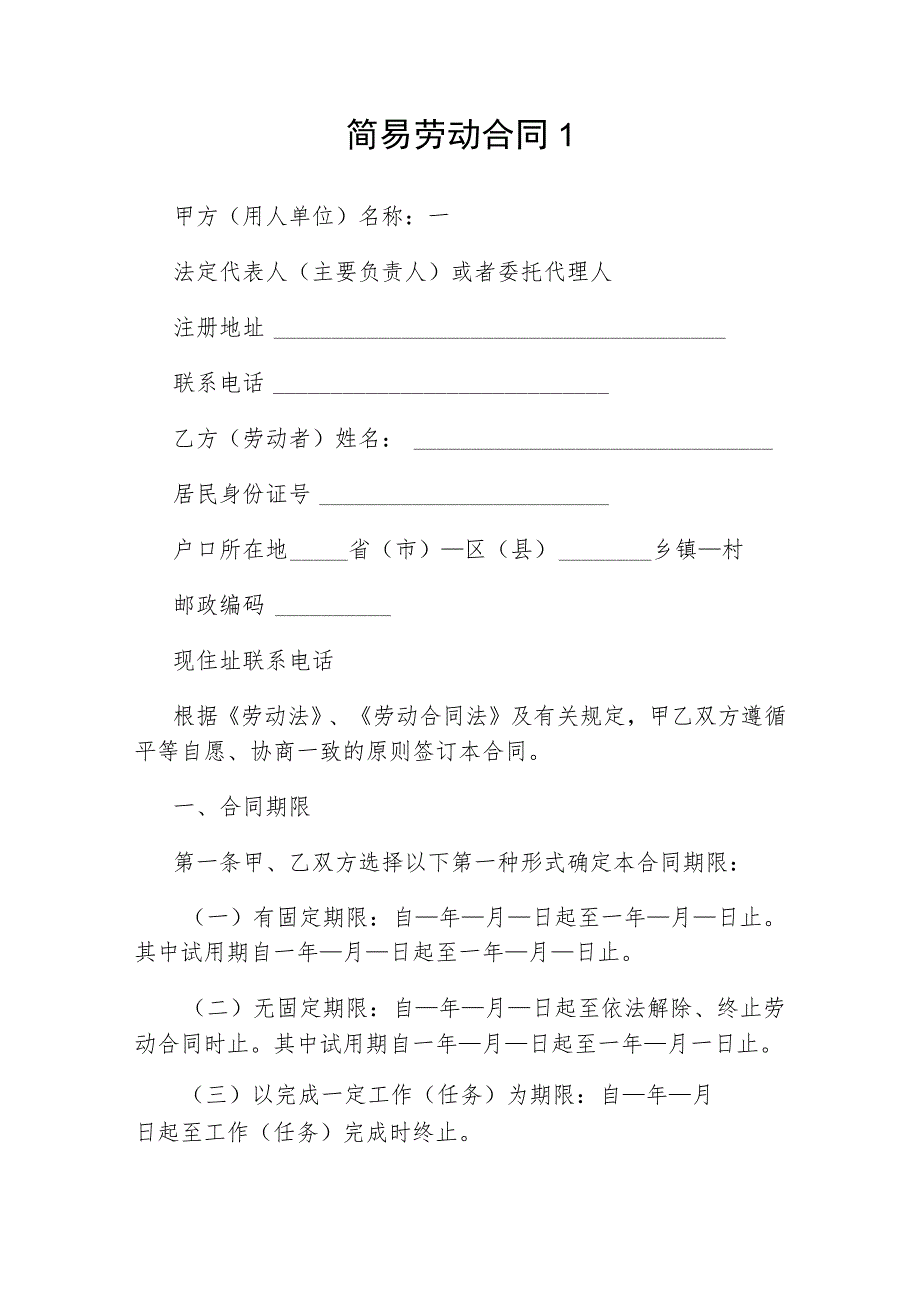 简易劳动合同1
甲方（用人单位）名称：一
法定代表人（主要负责人）或者委托代理人
注册地址 _______________________________________
联系电话 _____________________________
乙方（劳动者）姓名： _______________________________
居民身份证号 _________________________
户口所在地_____省（市）—区（县）________乡镇—村
邮政编码 __________
现住址联系电话
根据《劳动法》、《劳动合同法》及有关规定，甲乙双方遵循
平等自愿、协商一致的原则签订本合同。
一、合同期限
第一条甲、乙双方选择以下第一种形式确定本合同期限：
（一）有固定期限：自—年—月—日起至一年—月—日止。
其中试用期自一年—月—日起至一年—月—日止。
（二）无固定期限：自—年—月—日起至依法解除、终止劳
动合同时止。其中试用期自一年—月—日起至一年—月一日止。
（三）以完成一定工作（任务）为期限：自—年—月
日起至工作（任务）完成时终止。